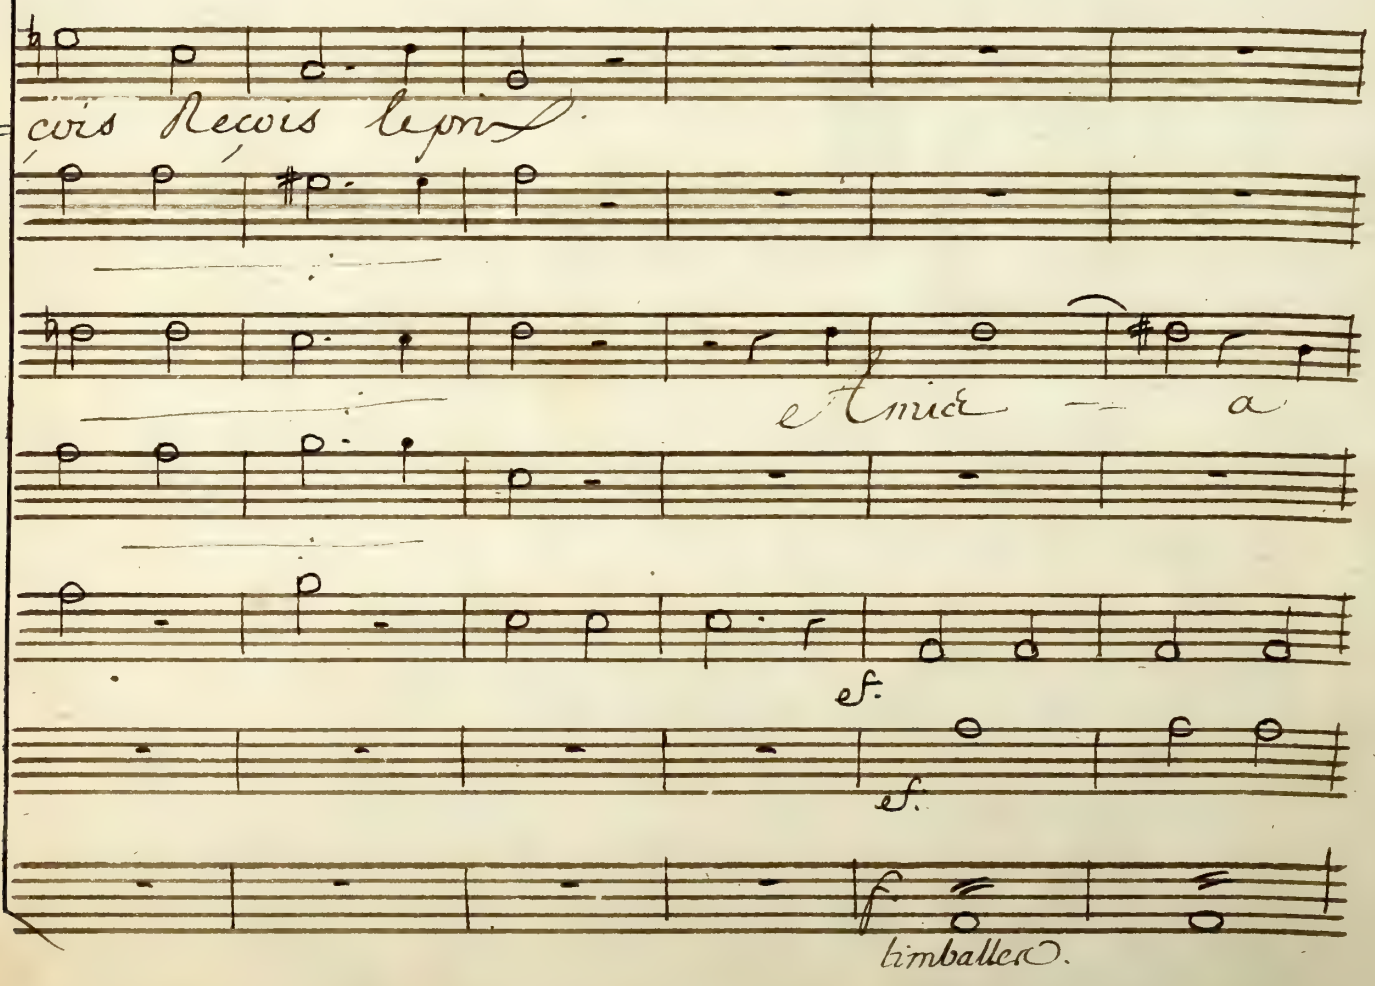 çois Reçois le prix.
et mia a
ef.
ef.
f
timballes.